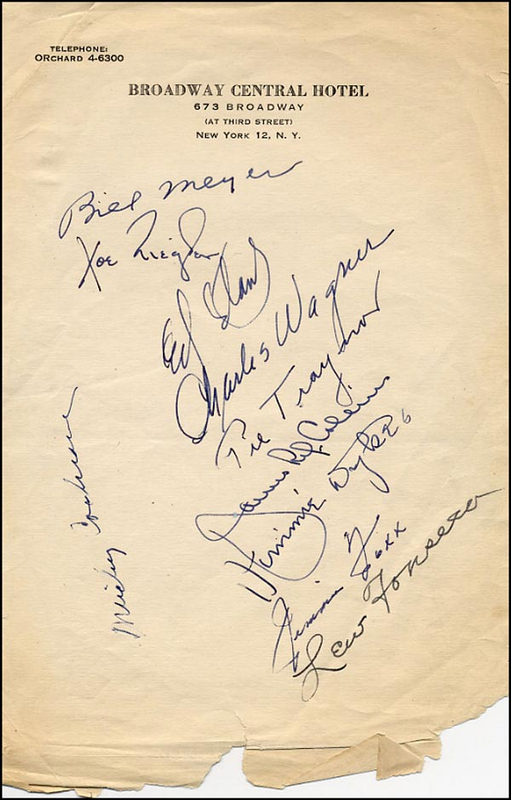 TELEPHONE:
ORCHARD 4-6300
BROADWAY CENTRAL HOTEL
673 BROADWAY
(AT THIRD STREET)
NEW YORK 12, N. Y.
Bill Meyer
Joe
Ed
Charles Wagner
Pie Traynor
James Rip Collins
Jimmie Dykes
Jimmie Foxx
Lew Fonseca
Mickey Cochrane